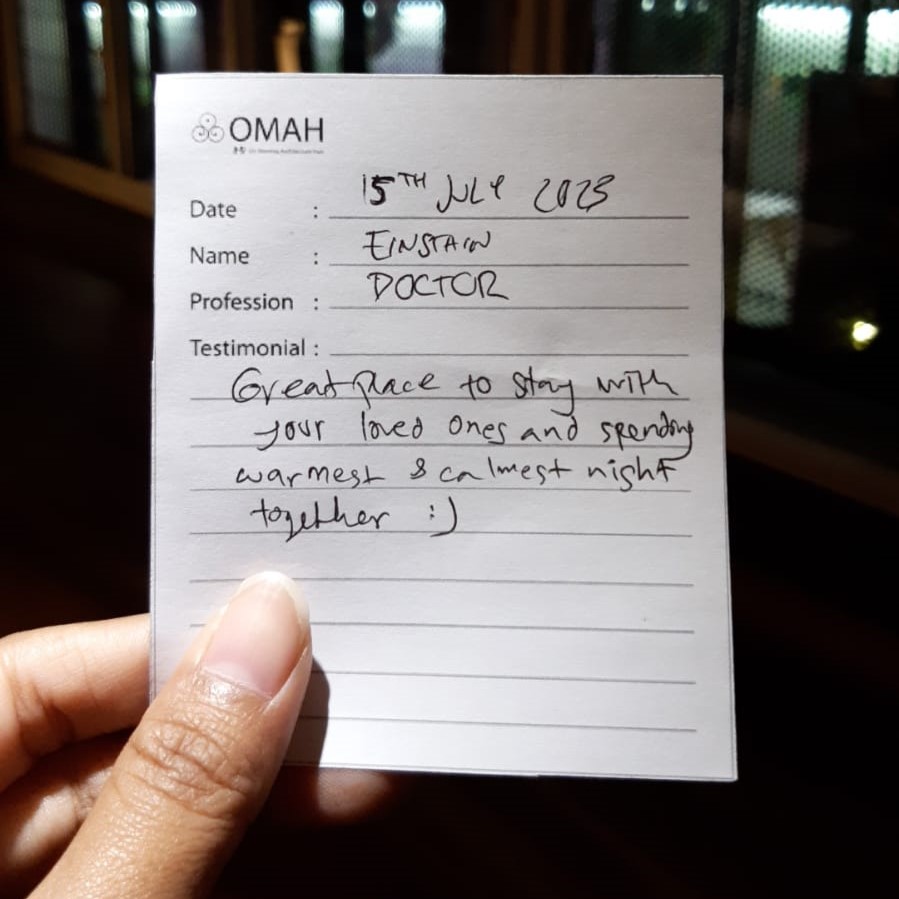 OMAH
Date : 15TH JULY 2023
Name : EINSTAIN
Profession : DOCTOR
Testimonial :
Great place to stay with
your loved ones and spending
warmest & calmest night
together :)